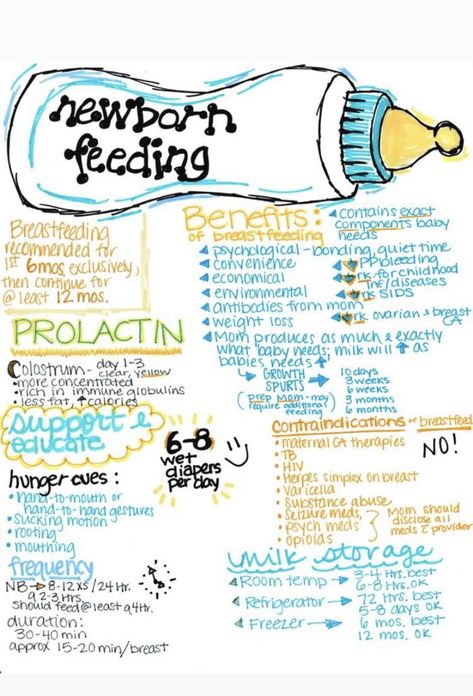 newborn
feeding
Breastfeeding
recommended for
1st 6mos. exclusively,
then continue for
@ least 12 mos.
PROLACTIN
Colostrum - day 1-3
clear, yellow
•more concentrated
•rich in immune globulins
•less fat, ↑calories
support &
educate
6-8
wet
diapers
per day
hunger cues:
•hand-to-mouth or
hand-to-hand gestures
•sucking motion
•rooting
•mouthing
frequency
NB→ 8-12xs/24Hr.
q 2-3 Hrs.
should feed@least q4Hr.
duration:
30-40 min
approx 15-20 min/breast
Benefits:
of breastfeeding
psychological - bonding, quiet time
convenience
economical
environmental
antibodies from mom
weight loss
contains exact
components baby
needs
↓PP bleeding
↓rk. for childhood
inf/diseases
↓rk SIDS
↓rk ovarian & breast
CA
Mom produces as much & exactly
what baby needs; milk will ↑ as
babies needs ↑
→ GROWTH
SPURTS →
10 days
3 weeks
6 weeks
3 months
6 months
(prep mom - may
require additional
feeding)
Contraindications of breastfeed
NO!
•maternal CA therapies
•TB
•HIV
•Herpes simplex on breast
•varicella
•substance abuse
•seizure meds,
•psych meds
•opioids
Mom should
disclose all
meds to provider
milk storage
Room temp → 3-4 Hrs. best
6-8 Hrs. OK
Refrigerator → 72 Hrs. best
5-8 days OK
Freezer → 6 mos. best
12 mos. OK